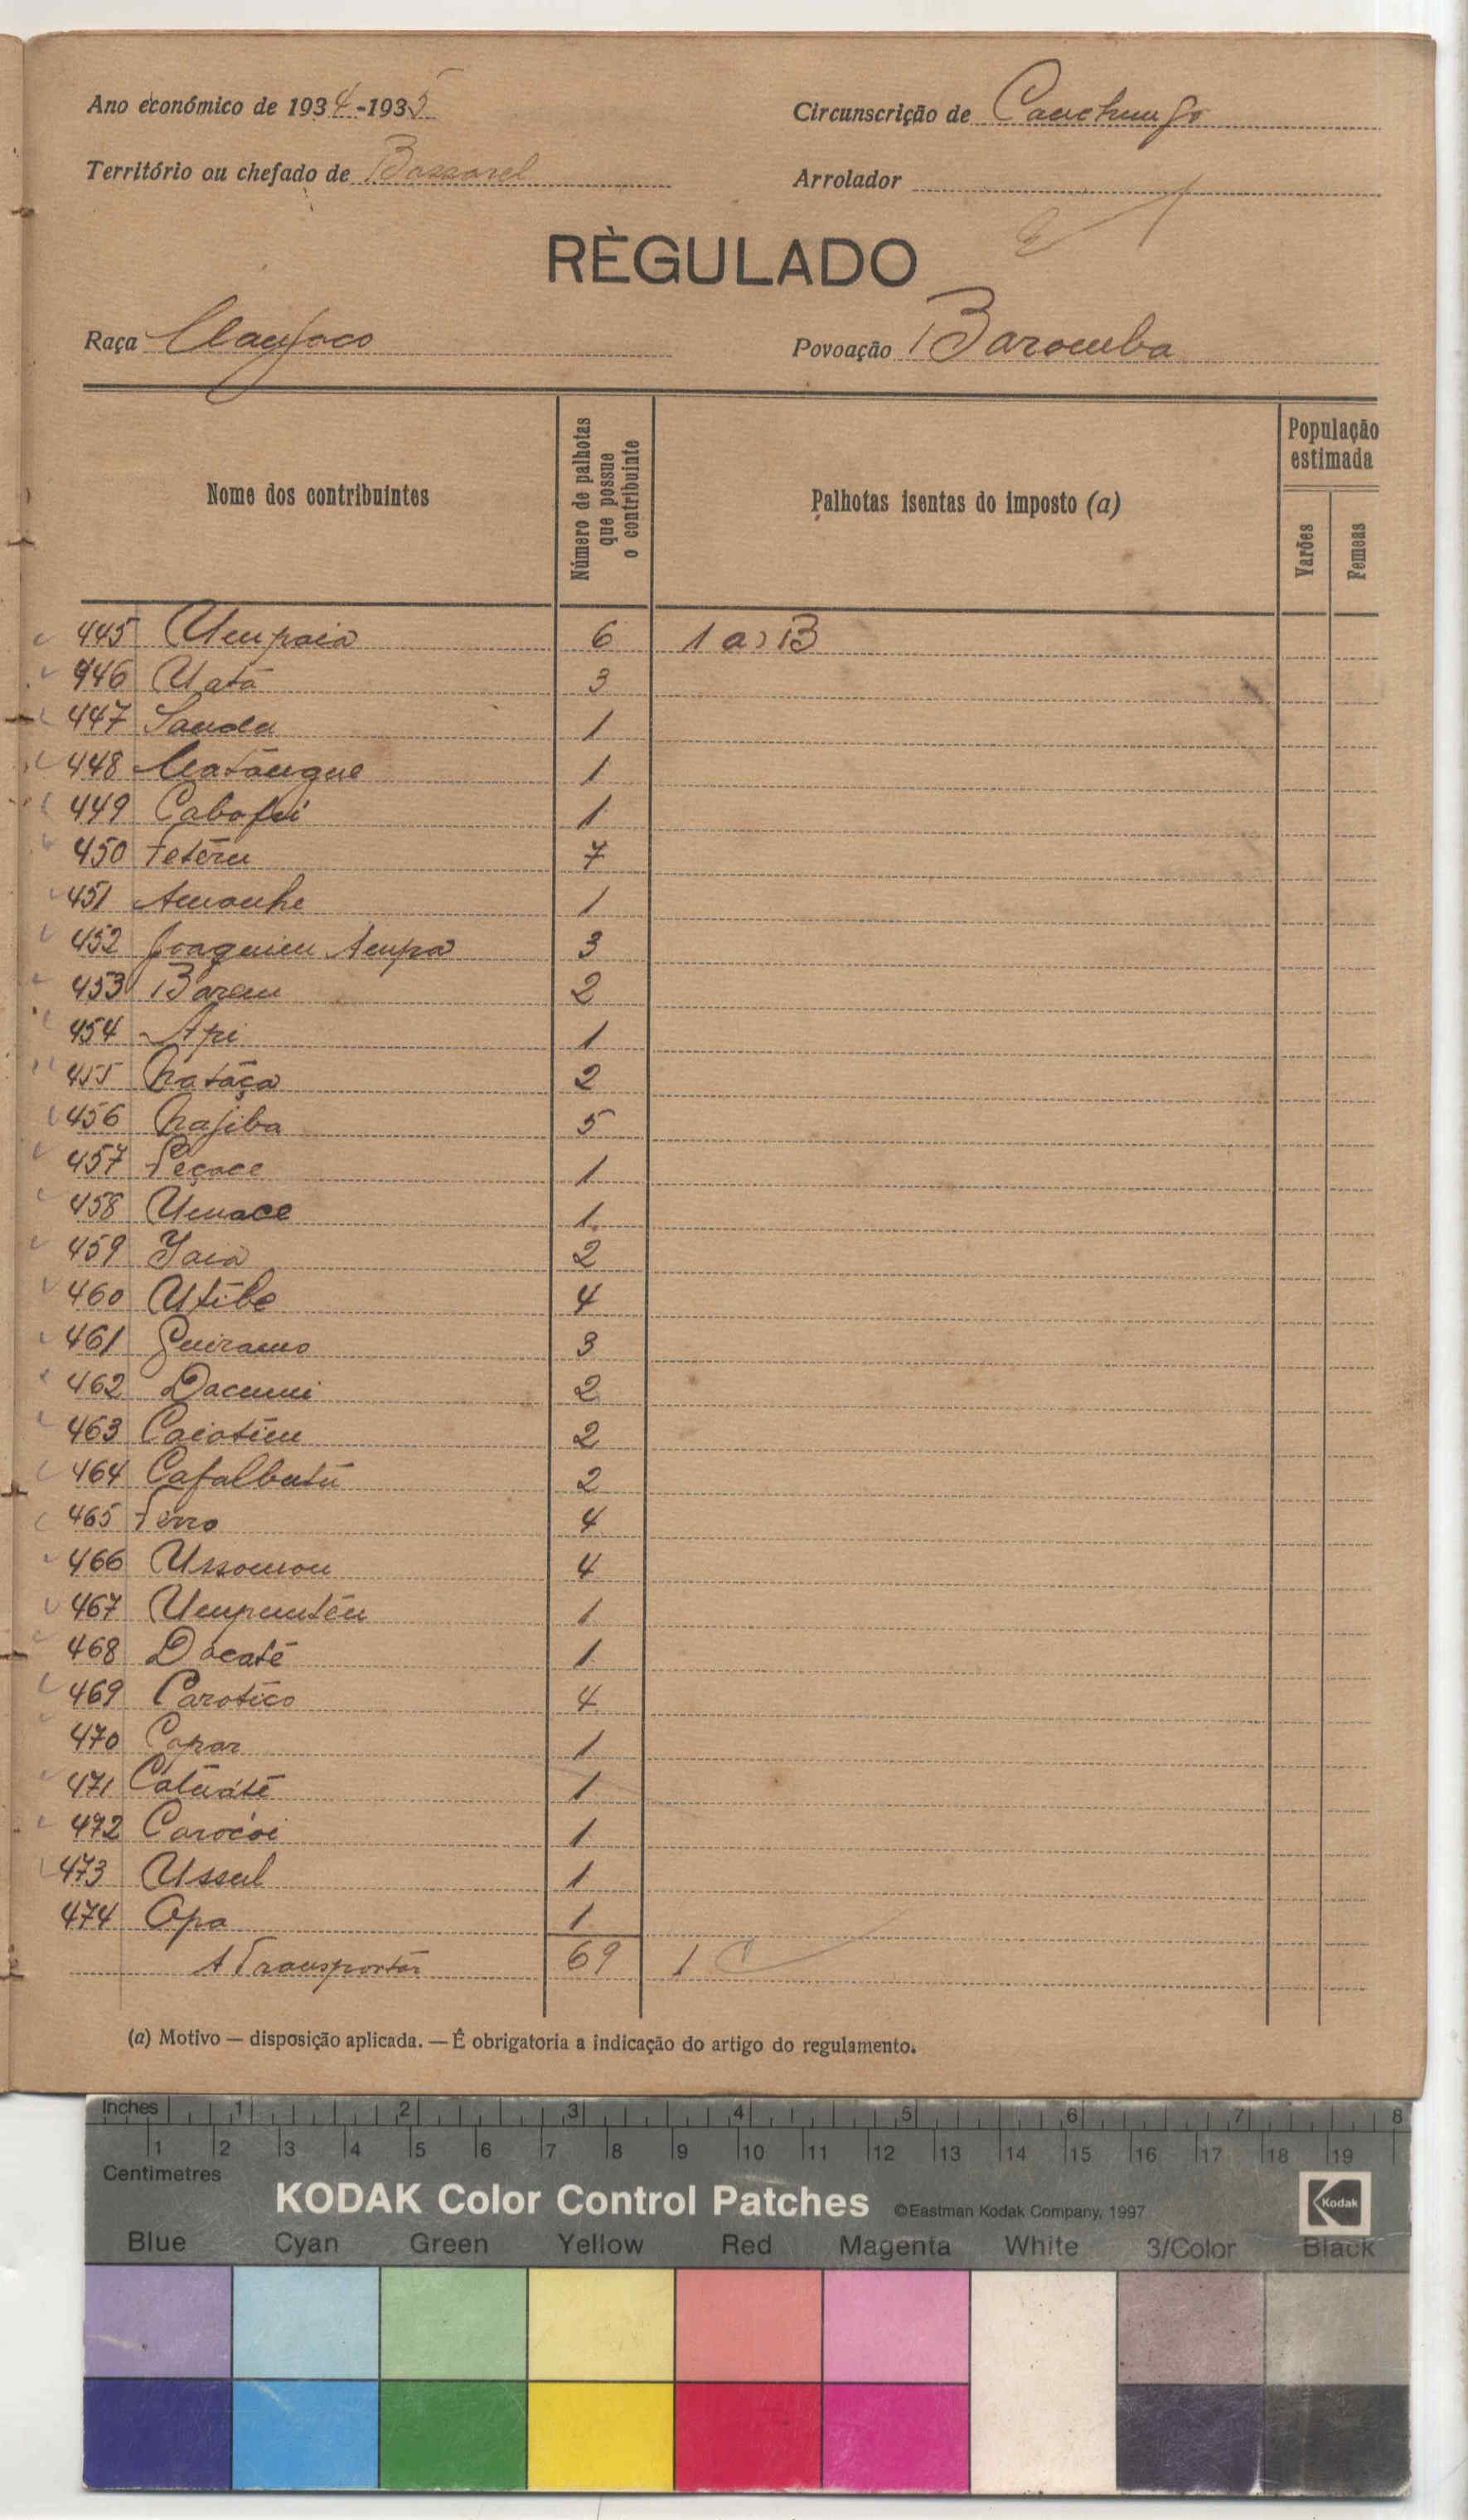 Ano económico de 1934-1935
Circunscrição de Canchungo
Território ou chefado de Bassarel
Arrolador
RÈGULADO
Raça Manjaco
Povoação Baromba
Nome dos contribuintes
Número de palhotas que possue o contribuinte
Palhotas isentas do imposto (a)
População estimada
Varões
Femeas
445 Umpaia 6 1 a) B
446 Uatá 3
447 Sanda 1
448 Matangue 1
449 Cabofui 1
450 7
451 Amonhe 1
452 Joaquim Ampa 3
453 Barem 2
454 Api 1
455 Natáça 2
456 Najiba 5
457 1
458 Umace 1
459 Jaia 2
460 Utibe 4
461 Guiramo 3
462 Dacumi 2
463 Caiotim 2
464 Cafalbutú 2
465 4
466 Ussomon 4
467 Umpuntém 1
468 Docaté 1
469 Carotico 4
470 Capar 1
471 Catuáté 1
472 Carocoi 1
473 Ussul 1
474 Opa 1
A Transportar 69 1
(a) Motivo — disposição aplicada. — É obrigatoria a indicação do artigo do regulamento.
Inches 1 2 3 4 5 6 7 8
1 2 3 4 5 6 7 8 9 10 11 12 13 14 15 16 17 18 19
Centimetres
KODAK Color Control Patches ©Eastman Kodak Company, 1997 Kodak
Blue Cyan Green Yellow Red Magenta White 3/Color Black